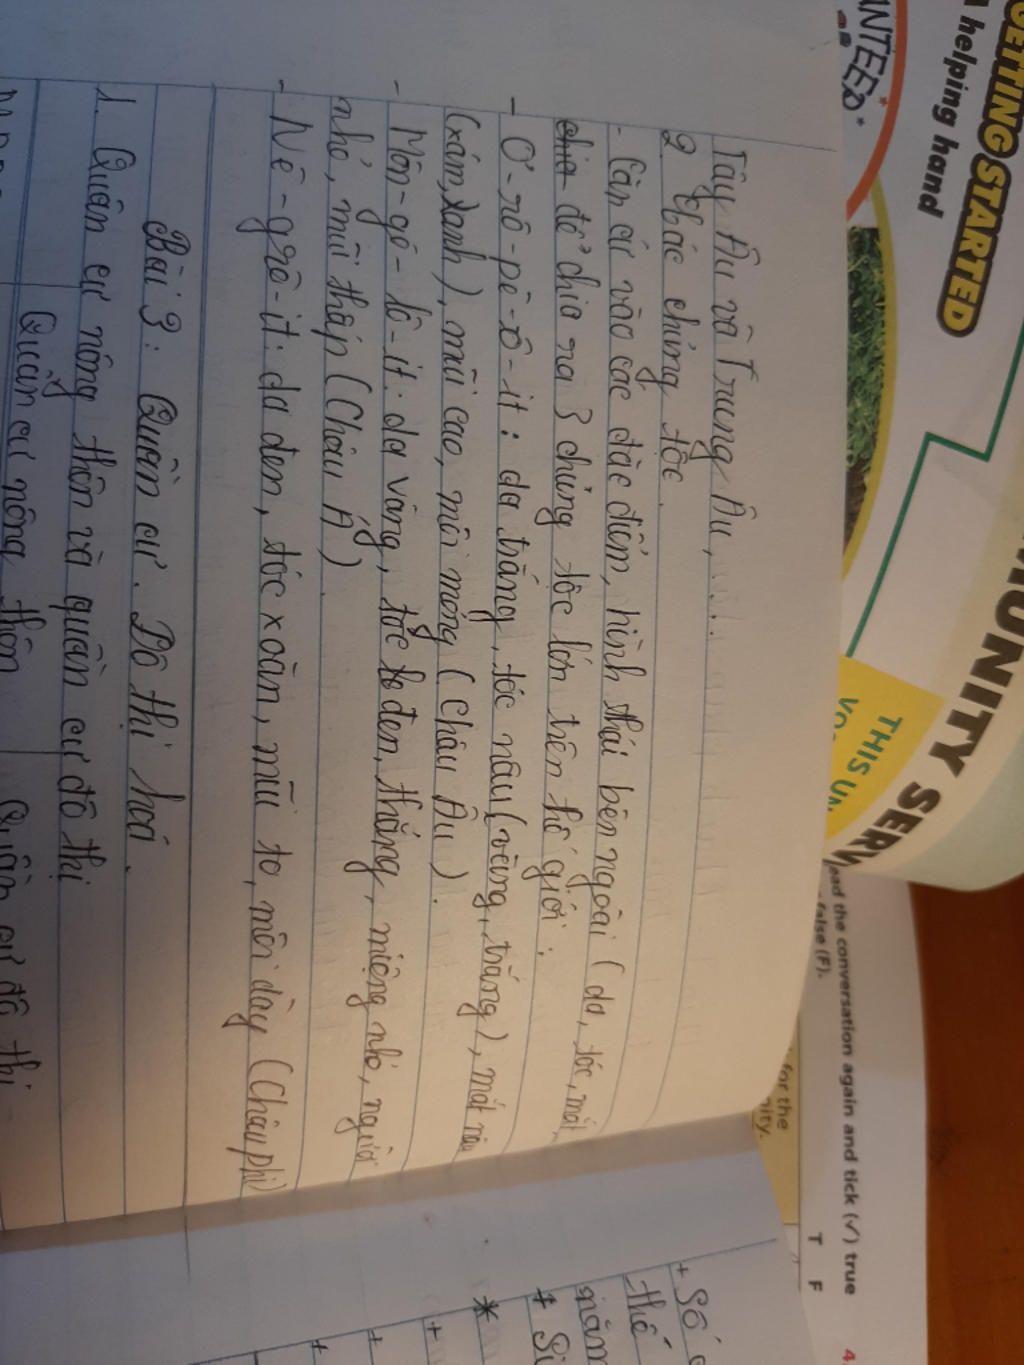 Tây Âu và Trung Âu, . . . .
2. Các chủng tộc.
- Căn cứ vào các đặc điểm, hình thái bên ngoài (da, tóc, mắt
để chia ra 3 chủng tộc lớn trên thế giới :
- Ơ-rô-pê-ô-it : da trắng, tóc nâu (vàng, trắng), mắt nâu
(xám, xanh), mũi cao, môi mỏng (Châu Âu).
- Môn-gô-lô-it : da vàng, tóc đen, thẳng, miệng nhỏ, người
nhỏ, mũi thấp (Châu Á).
- Nê-grô-it : da đen, tóc xoăn, mũi to, môi dày (Châu phi)
Bài 3 : Quần cư. Đô thị hoá.
1. Quần cư nông thôn và quần cư đô thị
Quần cư nông thôn
Quần cư đô thị
+ Số
thế
năm
*
+
+
+
GETTING STARTED
A helping hand
ANTEED
MUNITY SERV
THIS UN
read the conversation again and tick (✓) true
false (F).
for the
nity.
T F
4